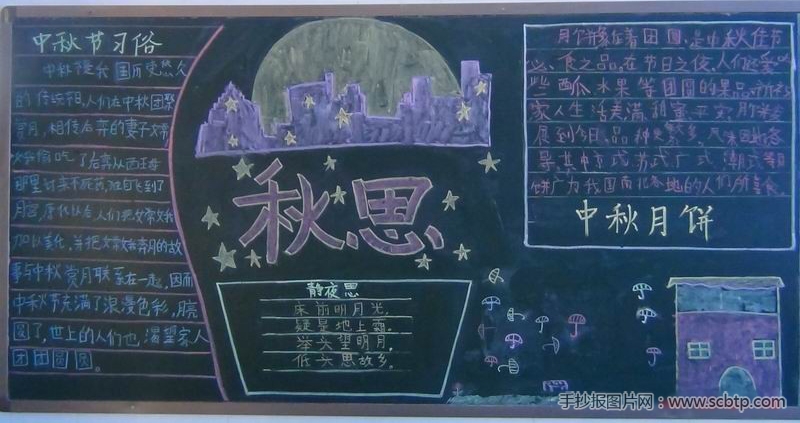 中秋节习俗
中秋是我国历史悠久
的传统节日,人们在中秋团聚
赏月,相传后羿的妻子
偷吃了后羿从西王母
那里讨来不死药,
月宫,后人们把
加以美化,并把奔月的故
事与中秋赏月联系在一起,因而
中秋节充满了浪漫色彩,月亮
圆了,世上的人们也渴望家人
团团圆圆。
秋思
静夜思
床前明月光,
疑是地上霜。
举头望明月,
低头思故乡。
月饼象征着团圆,是中秋佳节
必食之品,在节日之夜,人们还
些西瓜水果等团圆的果品,
家人生活美满和蜜平安,
展到今日,品种繁多,风味因地各
异,其中京式苏式广式潮式等月
饼广为我国南北各地的人们所喜食。
中秋月饼
手抄报图片网:www.scbtp.com